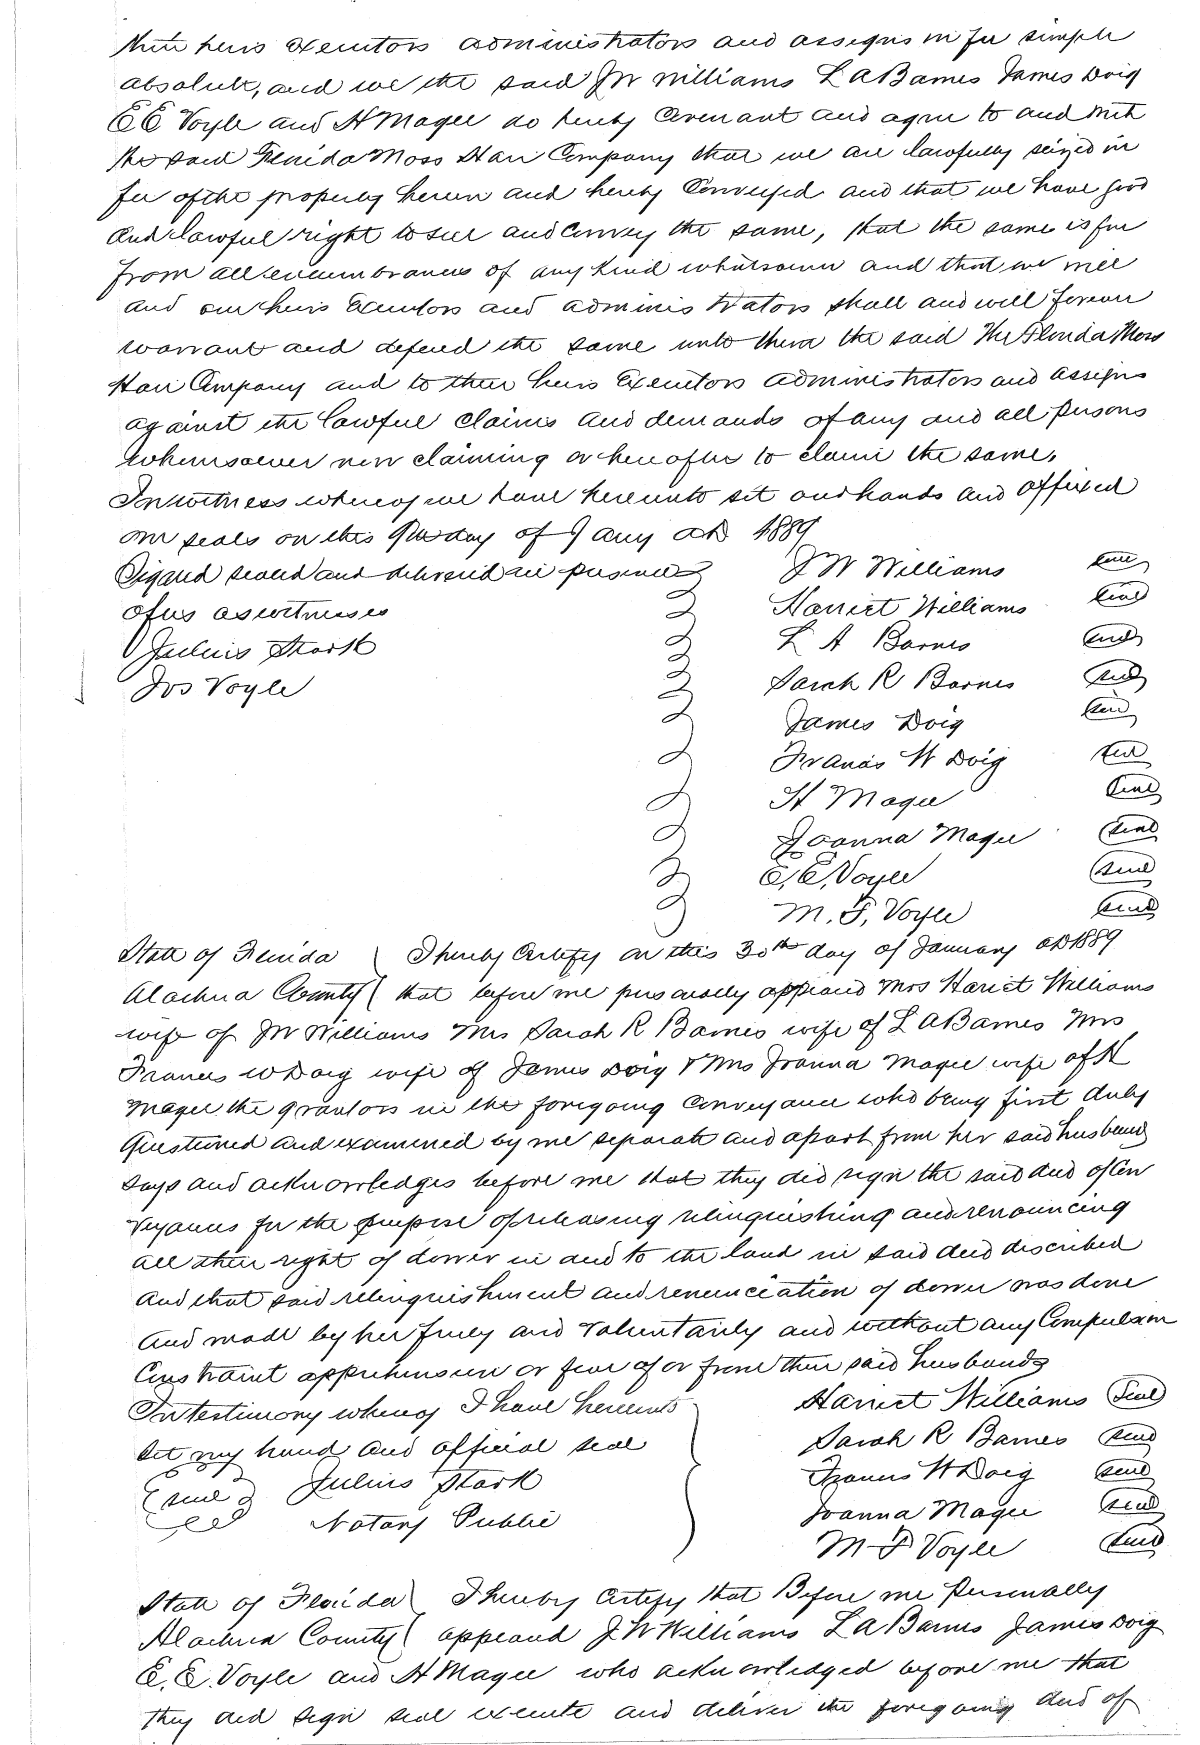 their heirs executors administrators and assigns in fee simple
absolute, and we the said JW Williams L A Barnes James Doig
E E Voyle and H Magee do hereby Covenant and agree to and with
the said Florida Moss Hair Company that we are lawfully seized in
fee of the property herein and hereby Conveyed and that we have good
and lawful right to sell and Convey the same, that the same is free
from all encumbrances of any kind whatsoever and that we will
and our heirs Executors and administrators shall and will forever
warrant and defend the same unto them the said The Florida Moss
Hair Company and to their heirs Executors administrators and assigns
against the lawful claims and demands of any and all persons
whomsoever now claiming or hereafter to claim the same.
In witness whereof we have hereunto set our hands and affixed
our seals on this day of Jany AD 1889
Signed sealed and delivered in presence J W Williams seal
of us as witnesses Harriet Williams seal
Julius Stark L A Barnes seal
Jos Voyle Sarah R Barnes seal
James Doig seal
Francis W Doig seal
H Magee seal
Joanna Magee seal
E, E, Voyle seal
M. F, Voyle seal
State of Florida I hereby Certify on this 30th day of January AD 1889
Alachua County that before me personally appeared Mrs Hariet Williams
wife of JW Williams Mrs Sarah R Barnes wife of L A Barnes Mrs
Frances W Doig wife of James Doig & Mrs Joanna Magee wife of H
Magee the grantors in the foregoing Conveyance who being first duly
Questioned and examined by me separate and apart from her said husband
says and acknowledges before me that they did sign the said deed of Con
veyances for the purpose of releasing relinquishing and renouncing
all their right of dower in and to the land in said deed discribed
And that said relinquishment and renunciation of dower was done
And made by her freely and voluntarily and without any Compulsion
Constraint apprehension or fear of or from their said husbands
In testimony whereof I have hereunto Harriet Williams Seal
set my hand and official seal Sarah R Barnes seal
seal Julius Stark Francis W Doig seal
Notary Public Joanna Magee seal
M F Voyle seal
State of Florida I hereby Certify that Before me Personally
Alachua County appeard J W Williams L A Barnes James Doig
E. E. Voyle and H Magee who acknowledged before me that
they did sign seal execute and deliver the foregoing deed of